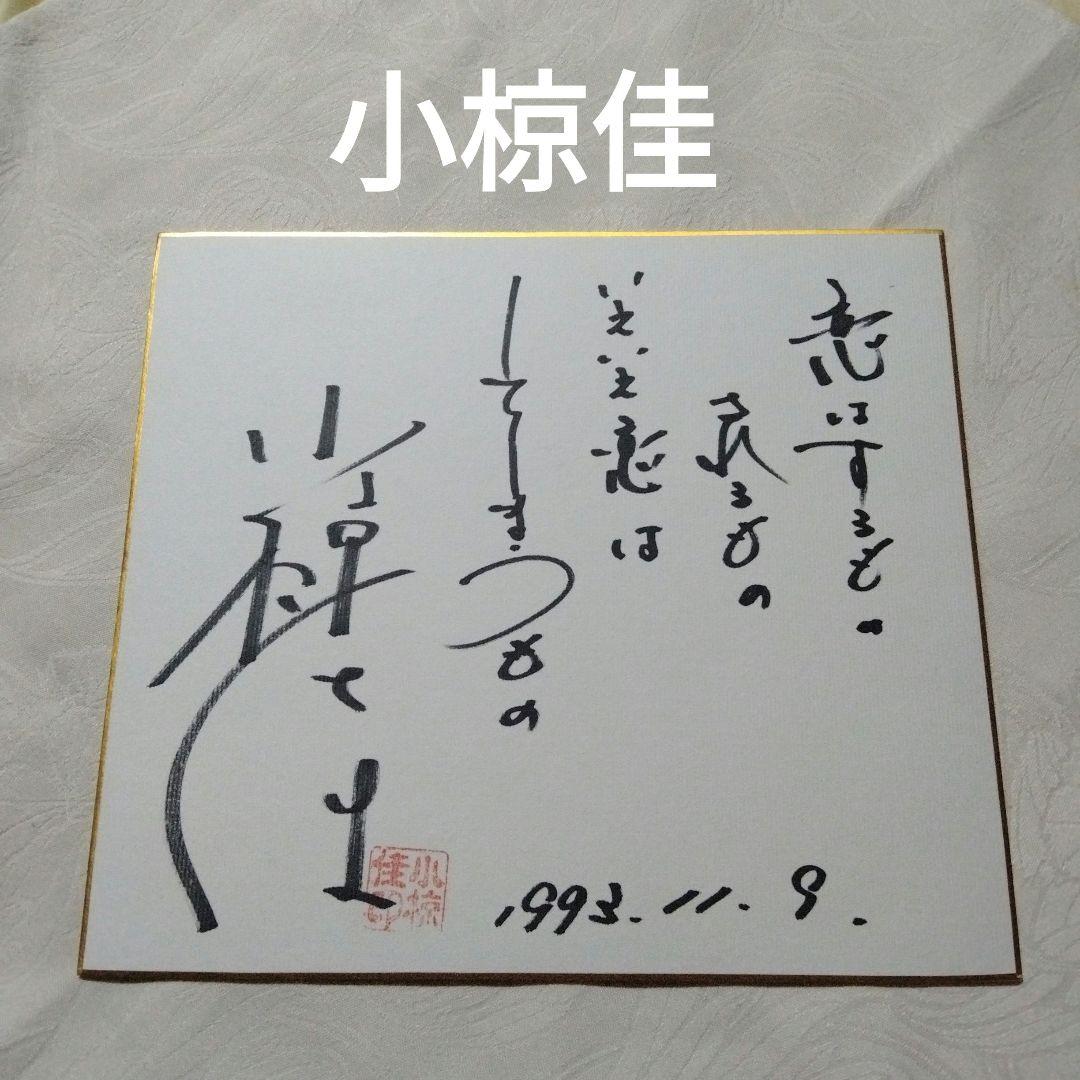 小椋佳
恋はするもの
されるもの
いえいえ恋は
してしまうもの
小椋佳
小椋
佳印
1993.11.9.